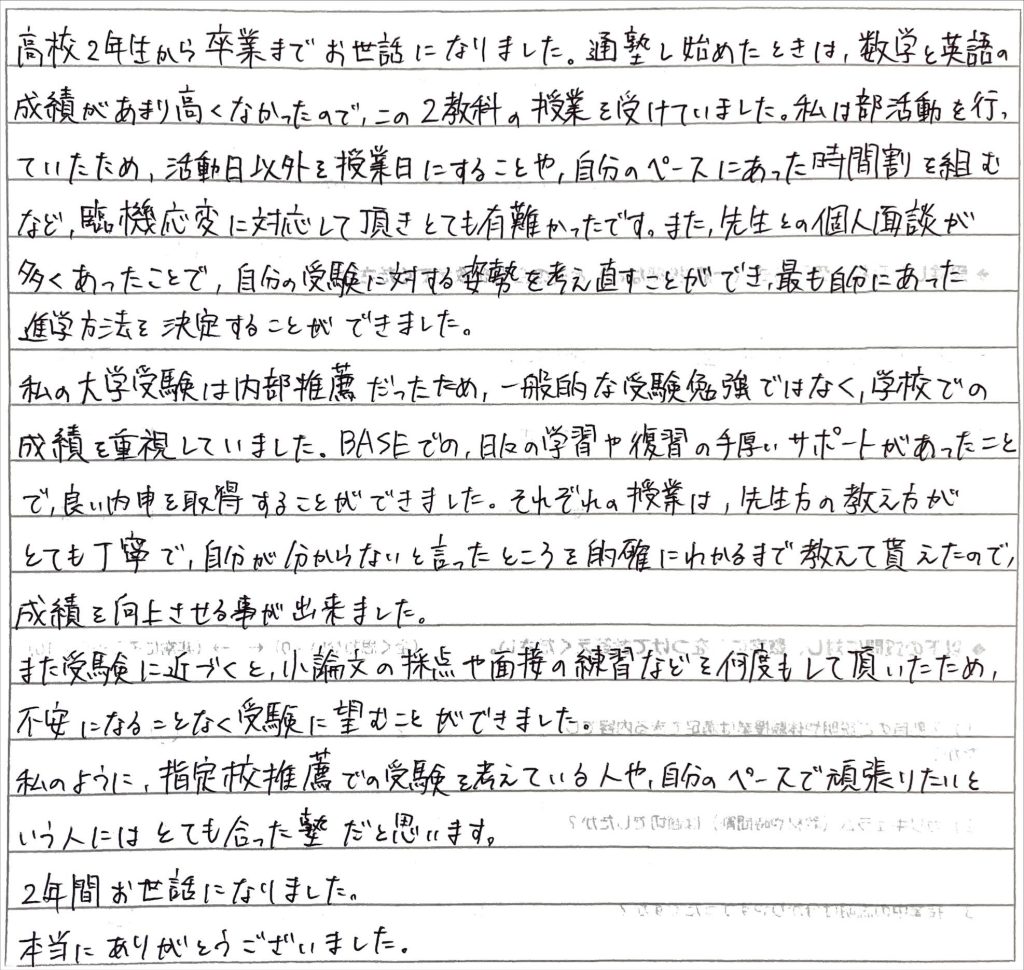 高校2年生から卒業までお世話になりました。通塾し始めたときは,数学と英語の
成績があまり高くなかったので,この2教科の授業を受けていました。私は部活動を行っ
ていたため,活動日以外を授業日にすることや,自分のペースにあった時間割を組む
など,臨機応変に対応して頂きとても有難かったです。また,先生との個人面談が
多くあったことで,自分の受験に対する姿勢を考え直すことができ,最も自分にあった
進学方法を決定することができました。
私の大学受験は内部推薦だったため,一般的な受験勉強ではなく,学校での
成績を重視していました。BASEでの,日々の学習や復習の手厚いサポートがあったこと
で,良い内申を取得することができました。それぞれの授業は,先生方の教え方が
とても丁寧で,自分が分からないと言ったところを的確にわかるまで教えて貰えたので,
成績を向上させる事が出来ました。
また受験に近づくと,小論文の採点や面接の練習などを何度もして頂いたため,
不安になることなく受験に望むことができました。
私のように,指定校推薦での受験を考えている人や,自分のペースで頑張りたいと
いう人にはとても合った塾だと思います。
2年間お世話になりました。
本当にありがとうございました。